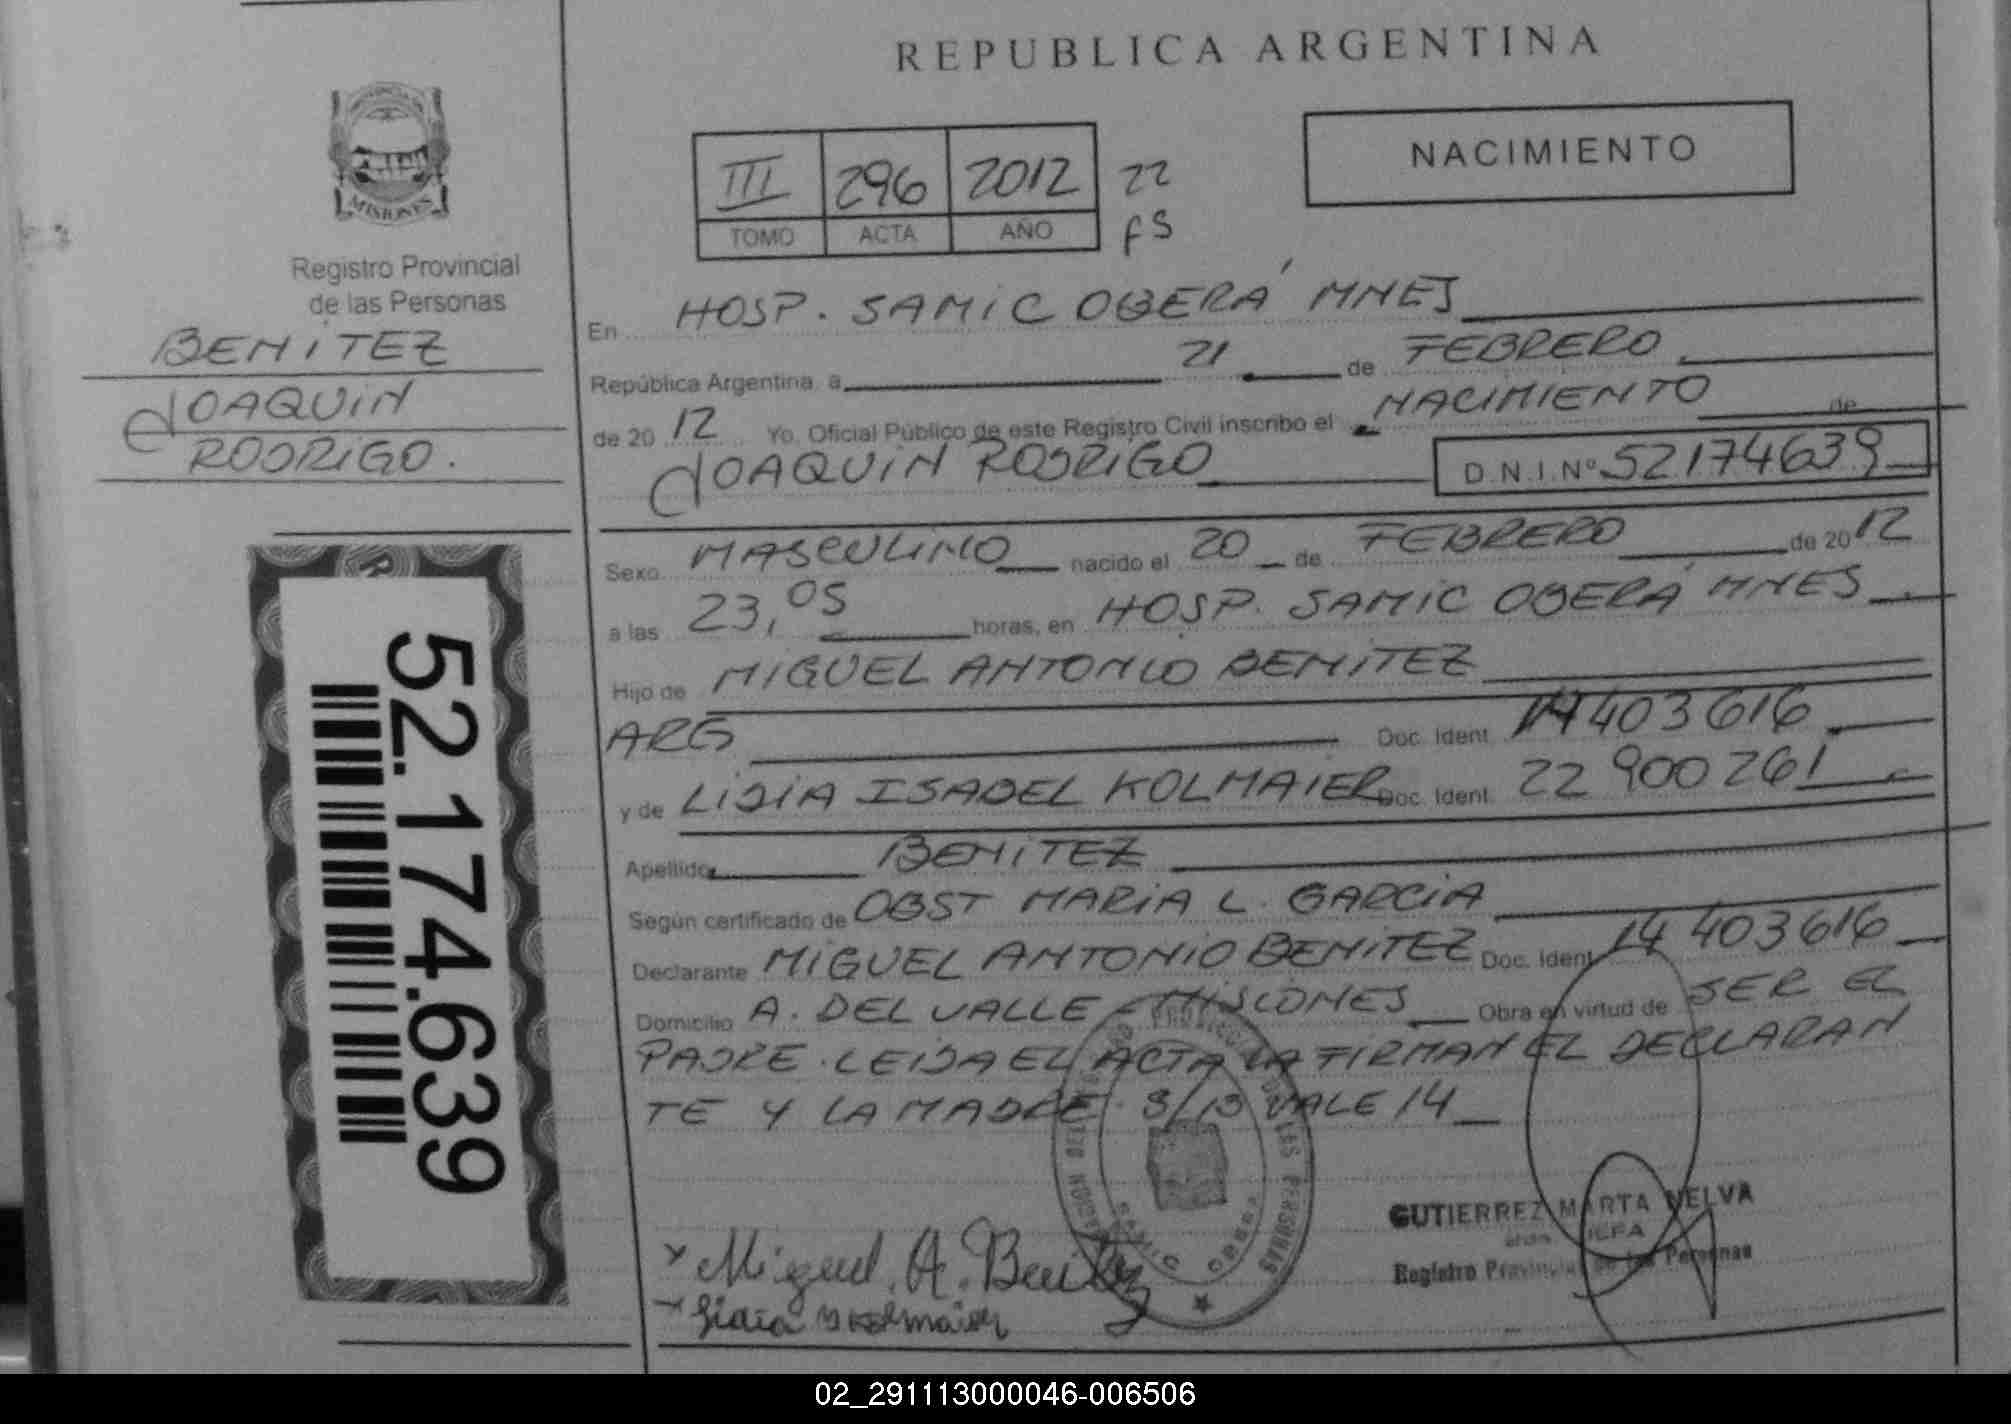 REPUBLICA ARGENTINA
MISIONES
Registro Provincial
de las Personas
BENITEZ
JOAQUIN
RODRIGO.
52.174.639
NACIMIENTO
III 296 2012 22
TOMO ACTA AÑO FS
En HOSP. SAMIC OBERÁ MNES
República Argentina, a 21 de FEBRERO
de 2012 Yo, Oficial Público de este Registro Civil inscribo el NACIMIENTO de
JOAQUIN RODRIGO D.N.I.Nº 52174639
Sexo MASCULINO nacido el 20 de FEBRERO de 2012
a las 23,05 horas, en HOSP. SAMIC OBERÁ MNES
Hijo de MIGUEL ANTONIO BENITEZ
ARG Doc. Ident. 14403616
y de LIDIA ISABEL KOLMAIER Doc. Ident. 22900261
Apellido BENITEZ
Según certificado de OBST MARIA L. GARCIA
Declarante MIGUEL ANTONIO BENITEZ Doc. Ident. 14 403616
Domicilio A. DEL VALLE - MISIONES Obra en virtud de SER EL
PADRE. LEIDA EL ACTA LA FIRMAN EL DECLARAN
TE Y LA MADRE. S/ 13 VALE 14
GUTIERREZ MARTA NELVA
JEFA
Registro Provincial de las Personas
Miguel A. Benitez
Lidia I Kolmaier
02_291113000046-006506